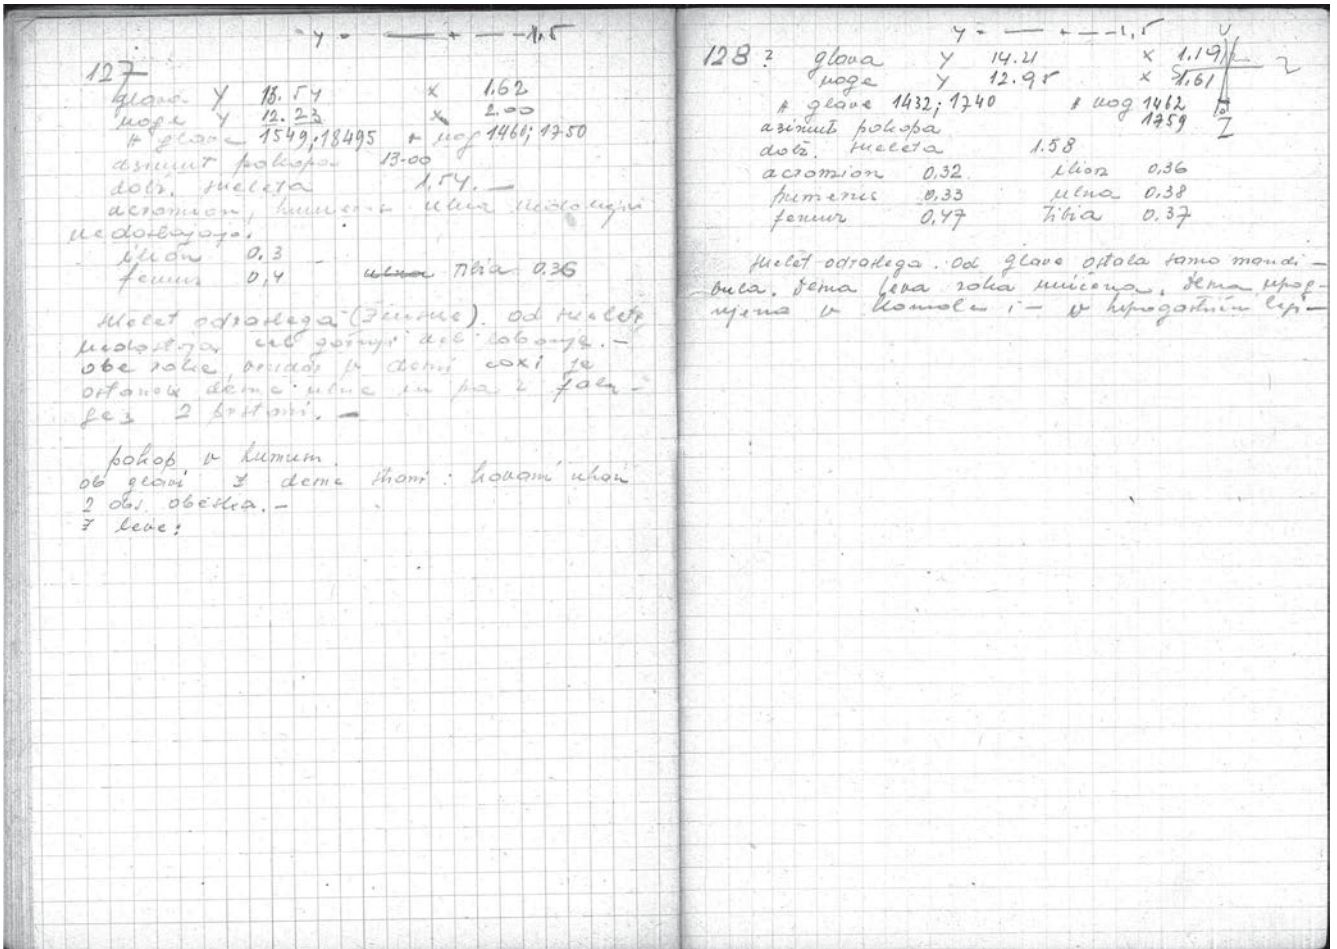 y = — + — -1,5
127
glava Y 13.54 x 1.62
noge Y 12.23 x 2.00
* glave 1549; 18495 * nog 1466; 1750
azimut pokopa 13-00
dolž. skeleta 1,54. —
acromion, humerus ulna
nedostajajo.
ilion 0.3
femur 0,4 ulna Tibia 0.36
skelet odraslega (Ženske). od skeleta
nedostaja gornji del lobanje. —
obe roke, v desni coxi je
ostanek desne ulne in pa 2 falan-
ge z 2 prstani. —
pokop v humum.
ob glavi z desne strani: kovani uhan
2 obs. obeska. —
z leve:
y = — + — -1,5
128? glava Y 14.21 x 1.19
noge Y 12.95 x 1.61
* glave 1432; 1740 * nog 1462
1759
azimut pokopa
dolž. skeleta 1.58
acromion 0,32 ilion 0,36
humerus 0,33 ulna 0,38
femur 0,47 Tibia 0.37
skelet odraslega. od glave ostala samo mandi-
bula. desna leva roka uničena, desna upog-
njena v komolcu i — v hipogastrični legi —